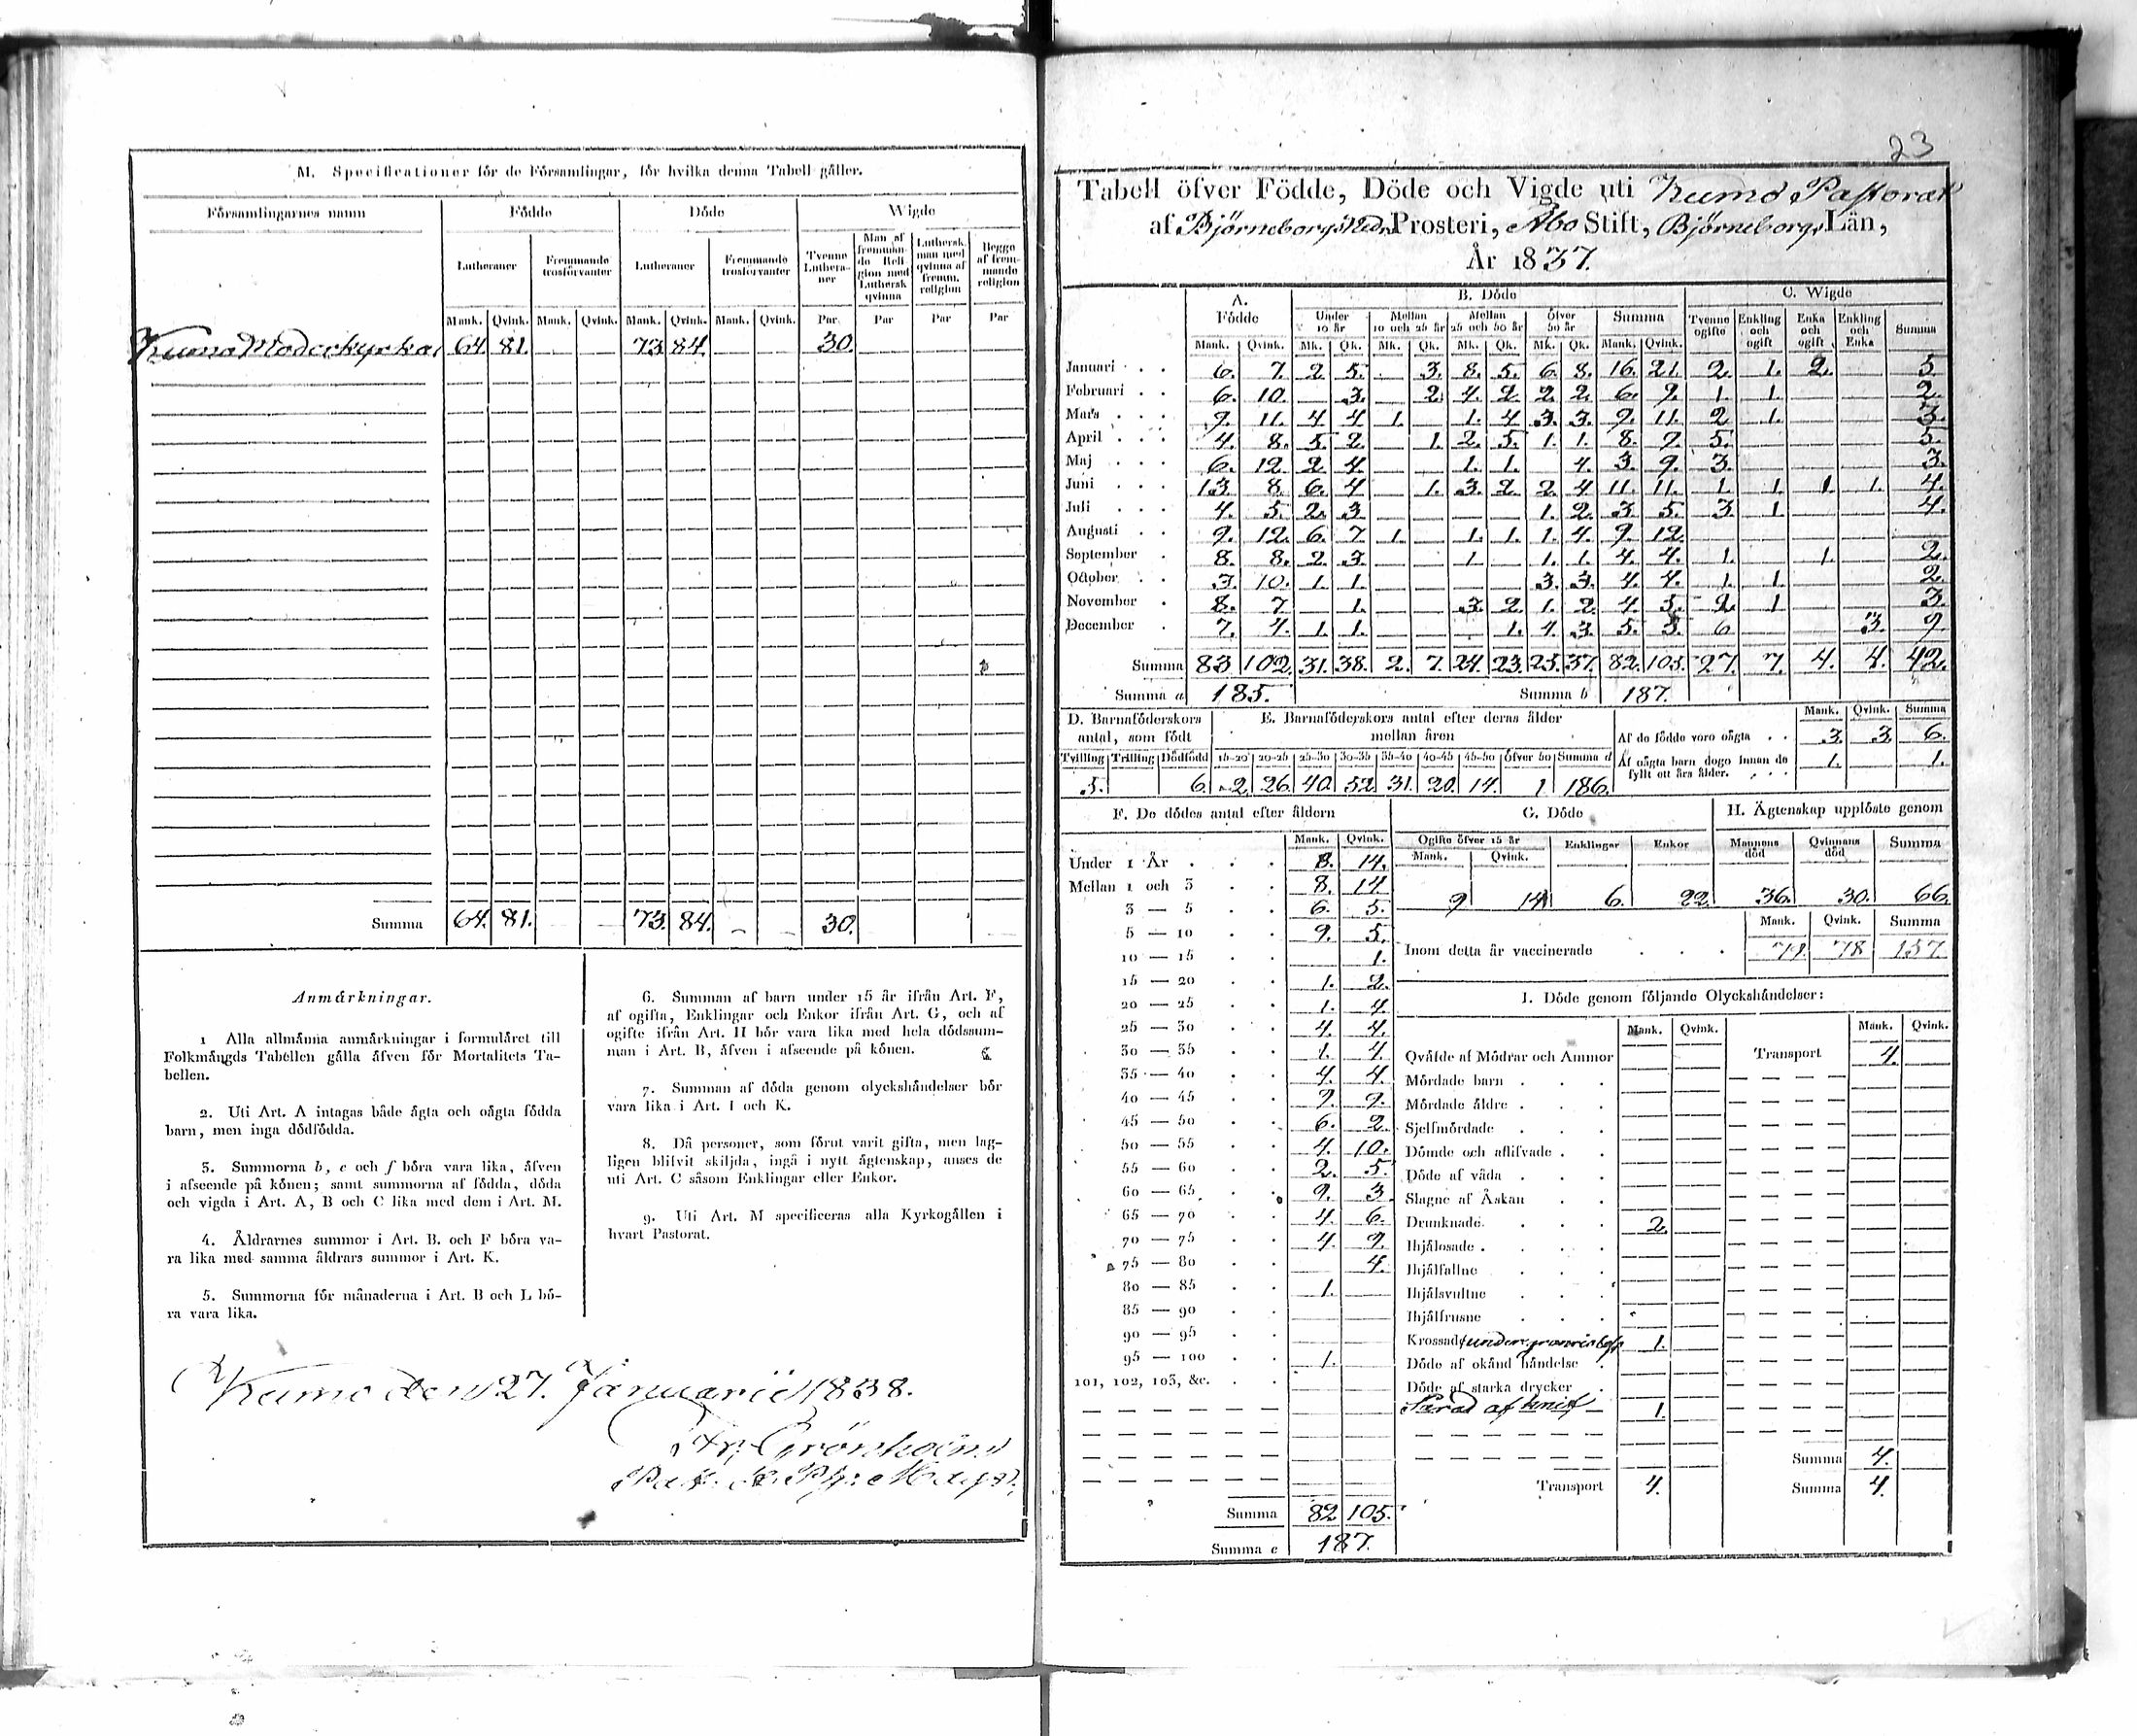 M. Specificationer för de Församlingar, för hvilka denna Tabell gäller.
Församlingarnes namn Födde Döde Wigde
Lutheraner Fremmande trosförvanter Lutheraner Fremmande trosförvanter Tvenne Lutheraner Man af fremmande Religion med Luthersk qvinna Luthersk man med qvinna af fremm. religion Begge af fremmande religion
Mank. Qvink. Mank. Qvink. Mank. Qvink. Mank. Qvink. Par Par Par Par
Kumo Moderkyrka 64. 81. 73. 84. 30.
Summa 64. 81. 73. 84. 30.
Anmärkningar.
1 Alla allmänna anmärkningar i formuläret till
Folkmängds Tabellen gälla äfven för Mortalitets Ta-
bellen.
2. Uti Art. A intagas både ägta och oägta födda
barn, men inga dödfödda.
3. Summorna b, c och f böra vara lika, äfven
i afseende på könen; samt summorna af födda, döda
och vigda i Art. A, B och C lika med dem i Art. M.
4. Åldrarnes summor i Art. B. och F böra va-
ra lika med samma åldrars summor i Art. K.
5. Summorna för månaderna i Art. B och L bö-
ra vara lika.
6. Summan af barn under 15 år ifrån Art. F,
af ogifta, Enklingar och Enkor ifrån Art. G, och af
ogifte ifrån Art. H bör vara lika med hela dödssum-
man i Art. B, äfven i afseende på könen.
7. Summan af döda genom olyckshändelser bör
vara lika i Art. I och K.
8. Då personer, som förut varit gifta, men lag-
ligen blifvit skiljda, ingå i nytt ägtenskap, anses de
uti Art. C såsom Enklingar eller Enkor.
9. Uti Art. M specificeras alla Kyrkogällen i
hvart Pastorat.
Kumo den 27. Januarii 1838.
Grönholm
23
Tabell öfver Födde, Döde och Vigde uti Kumo Pastorat
af Björneborgs Prosteri, Åbo Stift, Björneborgs Län,
År 1837.
A. Födde B. Döde C. Wigde
Under 10 år Mellan 10 och 25 år Mellan 25 och 50 år Öfver 50 år Summa Tvenne ogifte Enkling och ogift Enka och ogift Enkling och Enka Summa
Mank. Qvink. Mk. Qk. Mk. Qk. Mk. Qk. Mk. Qk. Mank. Qvink.
Januari 6. 7. 2 5. 3. 8. 5. 6. 8. 16. 21. 2. 1. 2. 5.
Februari 6. 10. 3. 2. 4. 2 2 2. 6. 9. 1. 1. 2.
Mars 9. 11. 4 4 1. 1. 4 3. 3. 9. 11. 2 1. 3.
April 4. 8. 5. 2. 1. 2. 5. 1. 1. 8. 9. 5. 5.
Maj 6. 12. 2 4. 1. 1. 4. 3. 9. 3. 3.
Juni 13. 8. 6. 4 1. 3. 2. 2. 4 11. 11. 1. 1. 1. 1. 4.
Juli 4. 5. 2. 3 1. 2. 3. 5. 3. 1 4.
Augusti 9. 12. 6. 7. 1. 1. 1. 1. 4. 9. 12.
September 8. 8. 2. 3. 1 1. 1. 4. 4. 1. 1. 2.
October 3. 10. 1. 1. 3. 3. 4. 4. 1. 1. 2.
November 8. 7. 1. 3. 2. 1. 2. 4. 5. 2. 1 3.
December 7. 4. 1. 1. 1. 4. 3. 5. 5. 6 3. 9.
Summa 83 102 31. 38. 2. 7. 24. 23. 25. 37. 82. 105. 27. 7. 4. 4. 42.
Summa a 185. Summa b 187.
D. Barnaföderskors antal, som födt E. Barnaföderskors antal efter deras ålder mellan åren Mank. Qvink. Summa
Af de födde voro oägta 3. 3. 6.
Tvilling Trilling Dödfödd 15-20 20-25 25-30 30-35 35-40 40-45 45-50 Öfver 50 Summa d
Af oägta barn dogo innan de fyllt ett års ålder. 1. 1.
5. 6. 2. 26. 40. 52. 31. 20. 14. 1 186.
F. De dödes antal efter åldern
Mank. Qvink.
Under 1 År 8. 14.
Mellan 1 och 3 8. 14
3 — 5 6. 5.
5 — 10 9. 5.
10 — 15 1.
15 — 20 1. 2.
20 — 25 1. 4.
25 — 30 4. 4.
30 — 35 1. 4.
35 — 40 4. 4.
40 — 45 9. 9.
45 — 50 6. 2.
50 — 55 4. 10.
55 — 60 2. 5.
60 — 65 9. 3
65 — 70 4. 6.
70 — 75 4. 9.
75 — 80 4.
80 — 85 1.
85 — 90
90 — 95
95 — 100 1.
101, 102, 103, &c.
Summa 82 105.
Summa c 187.
G. Döde
Ogifte öfver 15 år Enklingar Enkor
Mank. Qvink.
9 14 6. 22.
H. Ägtenskap upplöste genom
Mannens död Qvinnans död Summa
36. 30. 66.
Mank. Qvink. Summa
Inom detta år vaccinerade 79. 78 157.
I. Döde genom följande Olyckshändelser:
Mank. Qvink. Mank. Qvink.
Qväfde af Mödrar och Ammor Transport 4.
Mördade barn
Mördade äldre
Sjelfmördade
Dömde och aflifvade
Döde af våda
Slagne af Åskan
Drunknade 2.
Ihjälosade
Ihjälfallne
Ihjälsvultne
Ihjälfrusne
Krossade under 1.
Döde af okänd händelse
Döde af starka drycker
Sårad af knif 1.
Summa 4.
Transport 4. Summa 4.